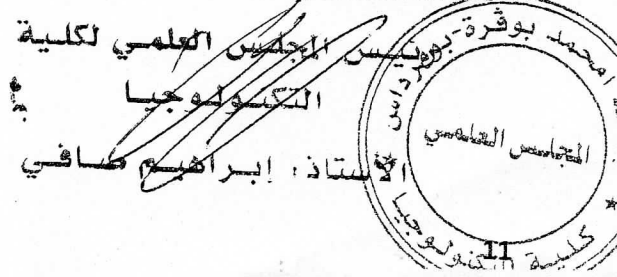 رئيس المجلس العلمي لكلية
التكنولوجيا
الأستاذ: إبراهيم صافي
امحمد بوقرة-بومرداس
المجلس العلمي
كلية التكنولوجيا
11